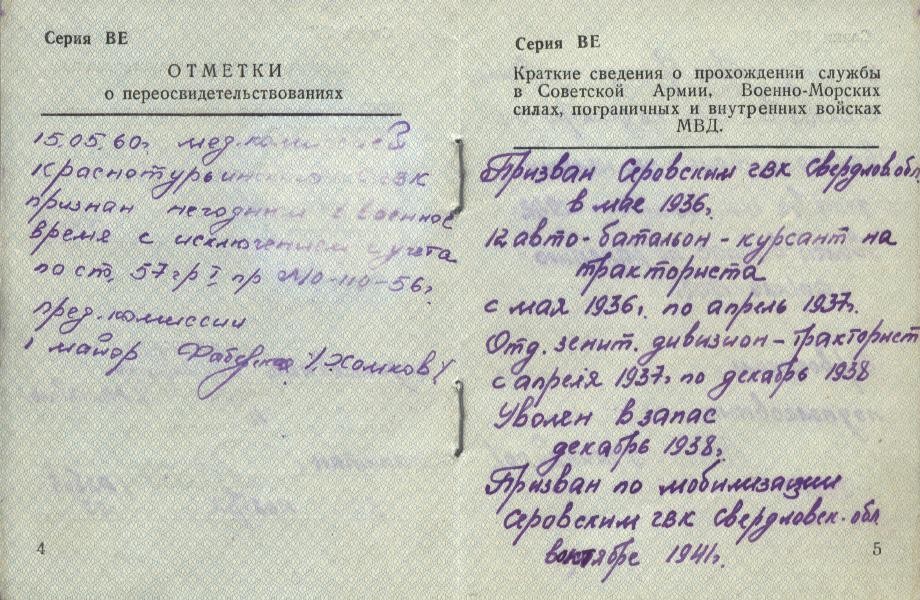 Серия ВЕ
ОТМЕТКИ
о переосвидетельствованиях
15.05.60г. мед.комиссией
Краснотурьинского ГВК
признан негодным в военное
время с исключением с учета
по ст. 57 гр I пр МО-110-56г.
пред.комиссии
майор /Хомков/
4
Серия ВЕ
Краткие сведения о прохождении службы
в Советской Армии, Военно-Морских
силах, пограничных и внутренних войсках
МВД.
Призван Серовским гвк Свердлов.обл.
в мае 1936г.
12 авто-батальон - курсант на
тракториста
с мая 1936г. по апрель 1937г.
Отд. зенит. дивизион - тракторист
с апреля 1937г. по декабрь 1938
Уволен в запас
декабрь 1938г.
Призван по мобилизации
Серовским гвк Свердловск.обл.
в октябре 1941г.
5